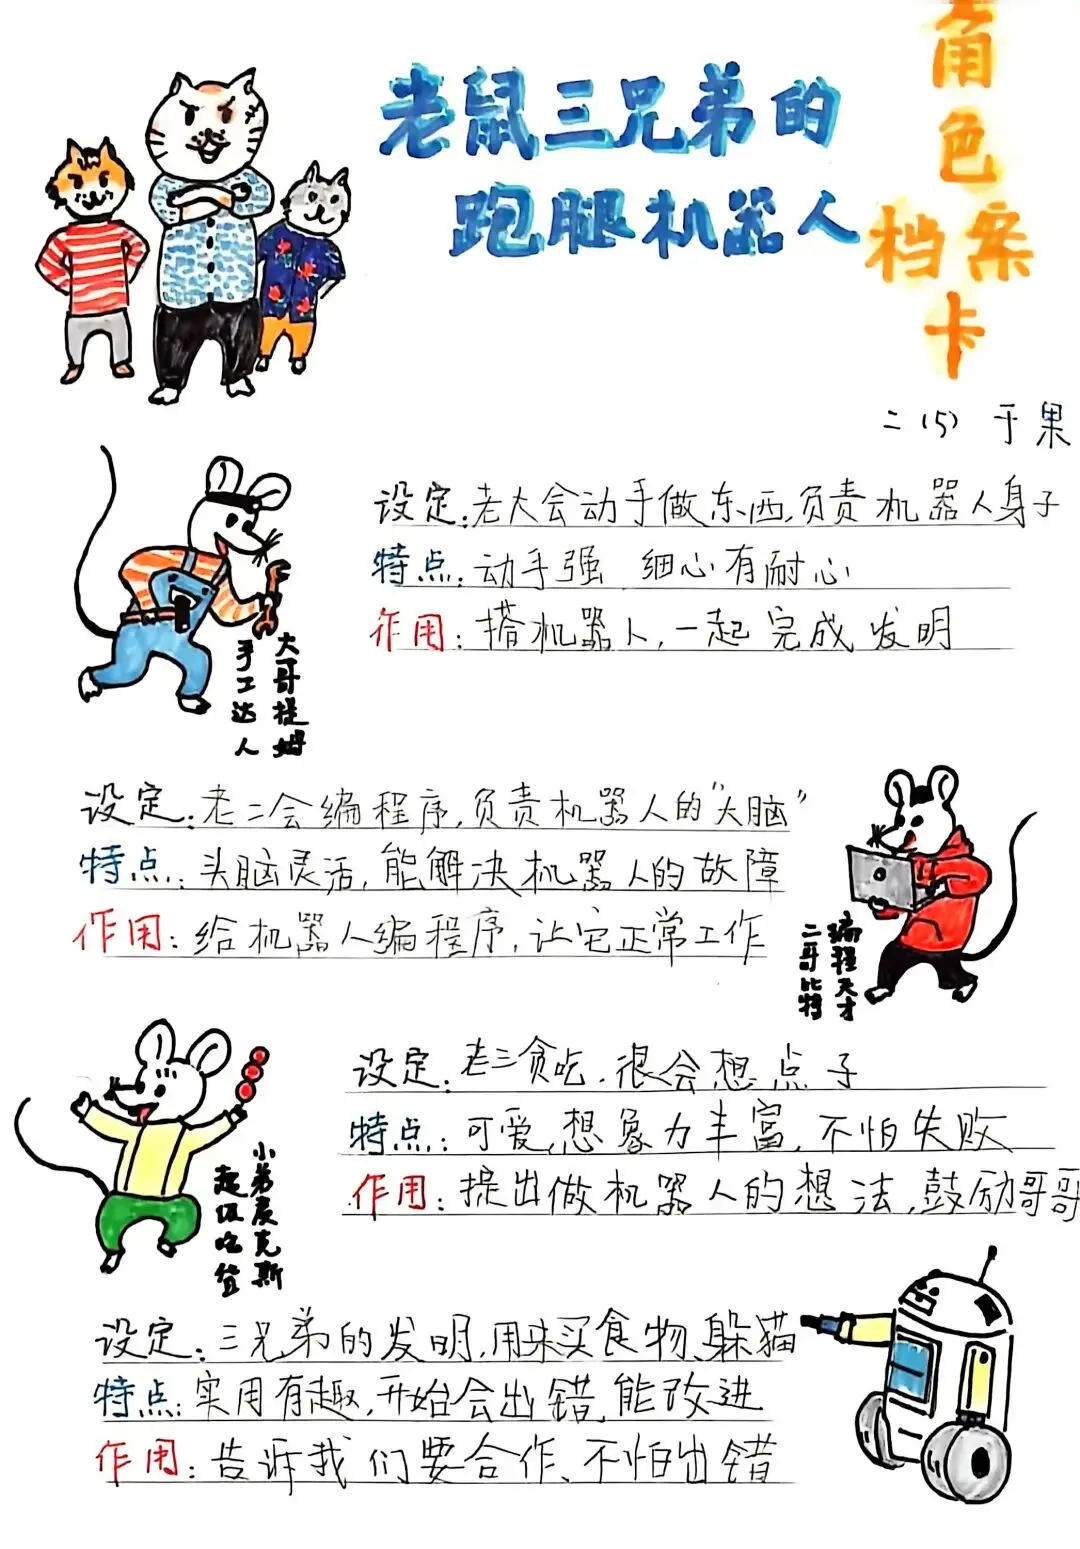 老鼠三兄弟的
跑腿机器人
角色
档案
卡
二(5) 于果
设定:老大会动手做东西,负责机器人身子
特点:动手强 细心有耐心
作用:搭机器人,一起完成发明
大哥提姆
手工达人
设定:老二会编程序,负责机器人的“大脑”
特点:头脑灵活,能解决机器人的故障
作用:给机器人编程序,让它正常工作
编程天才
二哥比特
设定:老三贪吃,很会想点子
特点:可爱,想象力丰富,不怕失败
作用:提出做机器人的想法,鼓励哥哥
小弟麦克斯
超级吃货
设定:三兄弟的发明,用来买食物、躲猫
特点:实用有趣,开始会出错,能改进
作用:告诉我们要合作、不怕出错